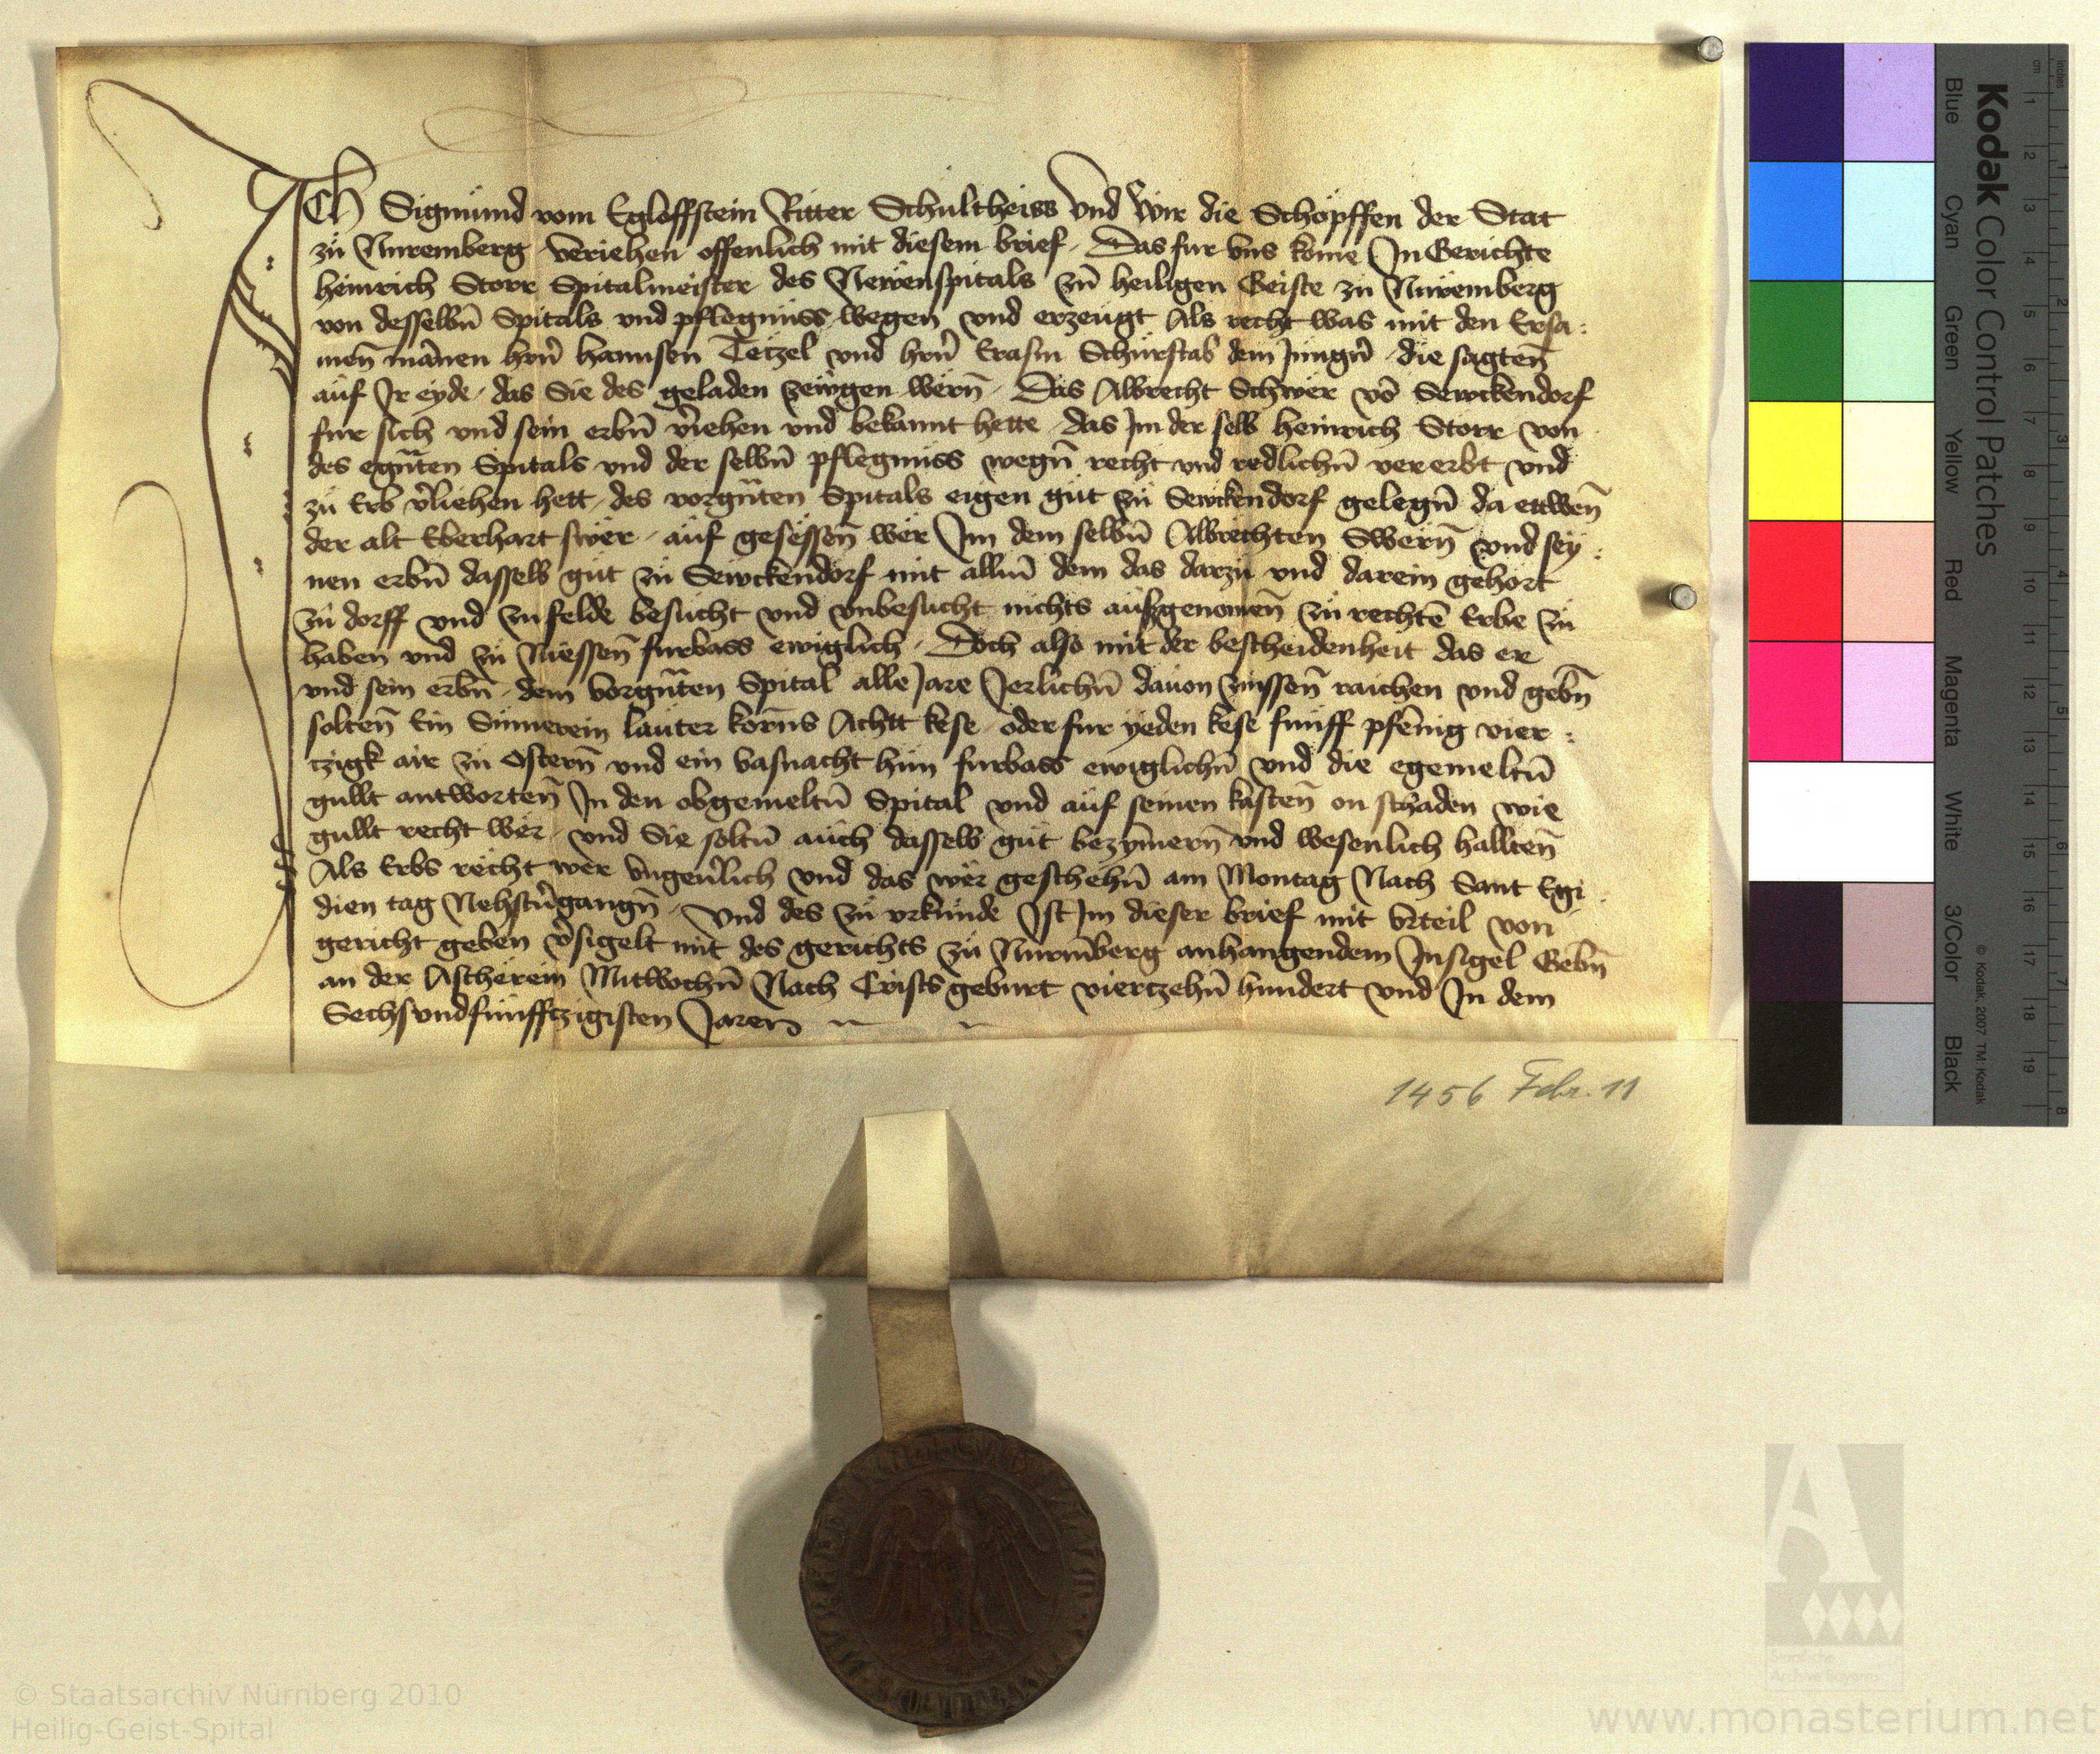 ICh Sigmund vom Egloffstein Ritter Schultheiss Vnd Wir die Schöpffen der Stat
zu Nuremberg Veriehen offenlich mit diesem brief Das fur vns kome In Gerichte
heinrich Storr Spitalmeister des Newenspitals zū heiligen Geiste zu Nuremberg
von desselbn̄ Spitals vnd pflegnüss wegen vnd erzeugt Als recht was mit den Ersa:
men mānen hrn̄ hannsen Tetzel vnd hrn̄ Erasm Schurstab dem Jungn̄ die sagten̄
auf Ir eyde das Sie des geladen zewgen wern̄ Das Albrecht Schwer vō Sewckendorf
fur sich vnd sein erbn̄ v̄iehen vnd bekannt hette das Im der selb heinrich Storr von
des egn̄ten Spitals vnd der selbn̄ pflegnuss wegn̄ recht vnd redlichn̄ vererbt vnd
zu Erb v̄liehen hett des vorgn̄ten Spitals eigen gut zu Sewckendorf gelegn̄ da ettwen̄
der alt Eberhart swer auf gesessen̄ wer Im dem selbn̄ Albrechten Swern̄ vnd sey:
nen erbn̄ dasselb gut zu Sewckendorf mit alln̄ dem das darzu vnd darein gehort
zu dorff vnd zu felde besucht vnd vnbesucht nichts aufzgenomen̄ zu rechtē Erbe zu
haben vnd zu Niessen̄ furbass ewiglich Doch also mit der bescheidenheit das er
vnd sein erbn̄ dem vorgn̄ten Spital alle Jare Jerlichn̄ dauon zinssen̄ raichen vnd gebn̄
solten̄ Ein Sumerein lauter korns Achtt kese oder fur yeden kese funff pfēnig vier:
tzigk air zu Ostern̄ vnd ein vasnacht hun furbass ewiglichn̄ vnd die egemeltn̄
gullt antworten̄ In den obgemeltn̄ Spital vnd auf seinen kasten̄ on schaden wie
gullt recht wer vnd Sie soltn̄ auch dasselb gut bezymern̄ vnd wesenlich hallten̄
Als Erbs recht wer vngeu̍lich vnd das wer geschehn̄ am Montag Nach Sant Egi
dien tag Nehstu̍gangn̄ Vnd des zu vrkunde Ist Im dieser brief mit vrteil von
gericht geben v̄sigelt mit des gerichts zu Nurmberg anhangendem Insigel Gebn̄
an der Ascherein Mitwochn̄ Nach Crists geburt viertzehn̄ hundert vnd In dem
Sechsvndfunfftzigisten Jaren
1456 Febr. 11
Kodak Color Control Patches
Blue Cyan Green Yellow Red Magenta White 3/Color Black
© Kodak, 2007 TM: Kodak
cm 1 2 3 4 5 6 7 8 9 10 11 12 13 14 15 16 17 18 19
inches 1 2 3 4 5 6 7 8
© Staatsarchiv Nürnberg 2010
Heilig-Geist-Spital
Staatliche
Archive Bayerns
www.monasterium.net